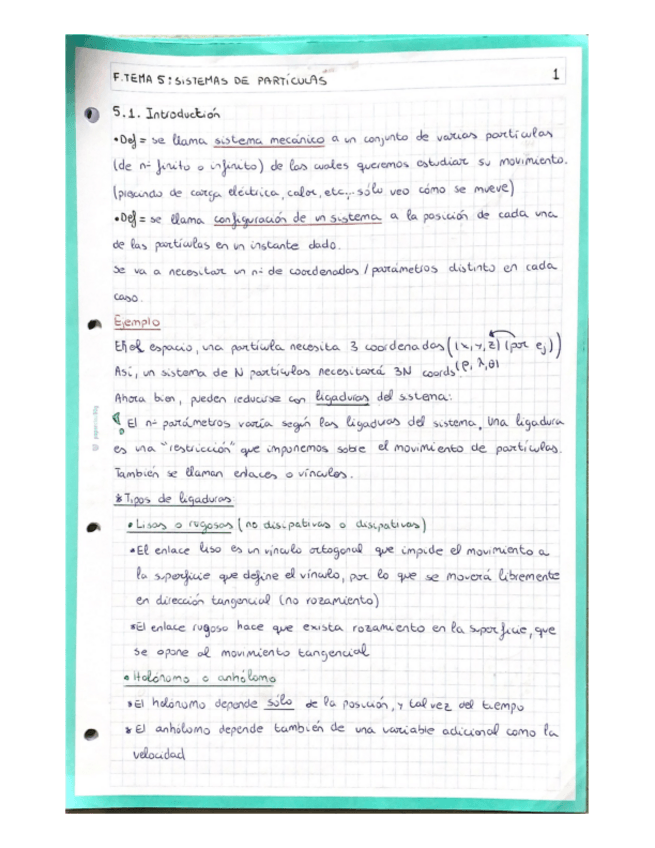 F.TEMA 5: SISTEMAS DE PARTÍCULAS
1
5.1. Introducción
•Def = se llama sistema mecánico a un conjunto de varias partículas
(de nº finito o infinito) de las cuales queremos estudiar su movimiento.
(prescindo de carga eléctrica, calor, etc... sólo veo cómo se mueve)
•Def = se llama configuración de un sistema a la posición de cada una
de las partículas en un instante dado.
Se va a necesitar un nº de coordenadas / parámetros distinto en cada
caso.
Ejemplo
En el espacio, una partícula necesita 3 coordenadas ((x,y,z) (por ej))
Así, un sistema de N partículas necesitará 3N coords (ρ, λ, θ)
Ahora bien, pueden reducirse con ligaduras del sistema:
El nº parámetros varía según las ligaduras del sistema. Una ligadura
es una "restricción" que imponemos sobre el movimiento de partículas.
También se llaman enlaces o vínculos.
* Tipos de ligaduras
• Lisas o rugosas (no disipativas o disipativas)
•El enlace liso es un vínculo ortogonal que impide el movimiento a
la superficie que define el vínculo, por lo que se moverá libremente
en dirección tangencial (no rozamiento)
•El enlace rugoso hace que exista rozamiento en la superficie, que
se opone al movimiento tangencial
• Holónomo o anhólomo
* El holónomo depende sólo de la posición, y tal vez del tiempo
* El anhólomo depende también de una variable adicional como la
velocidad